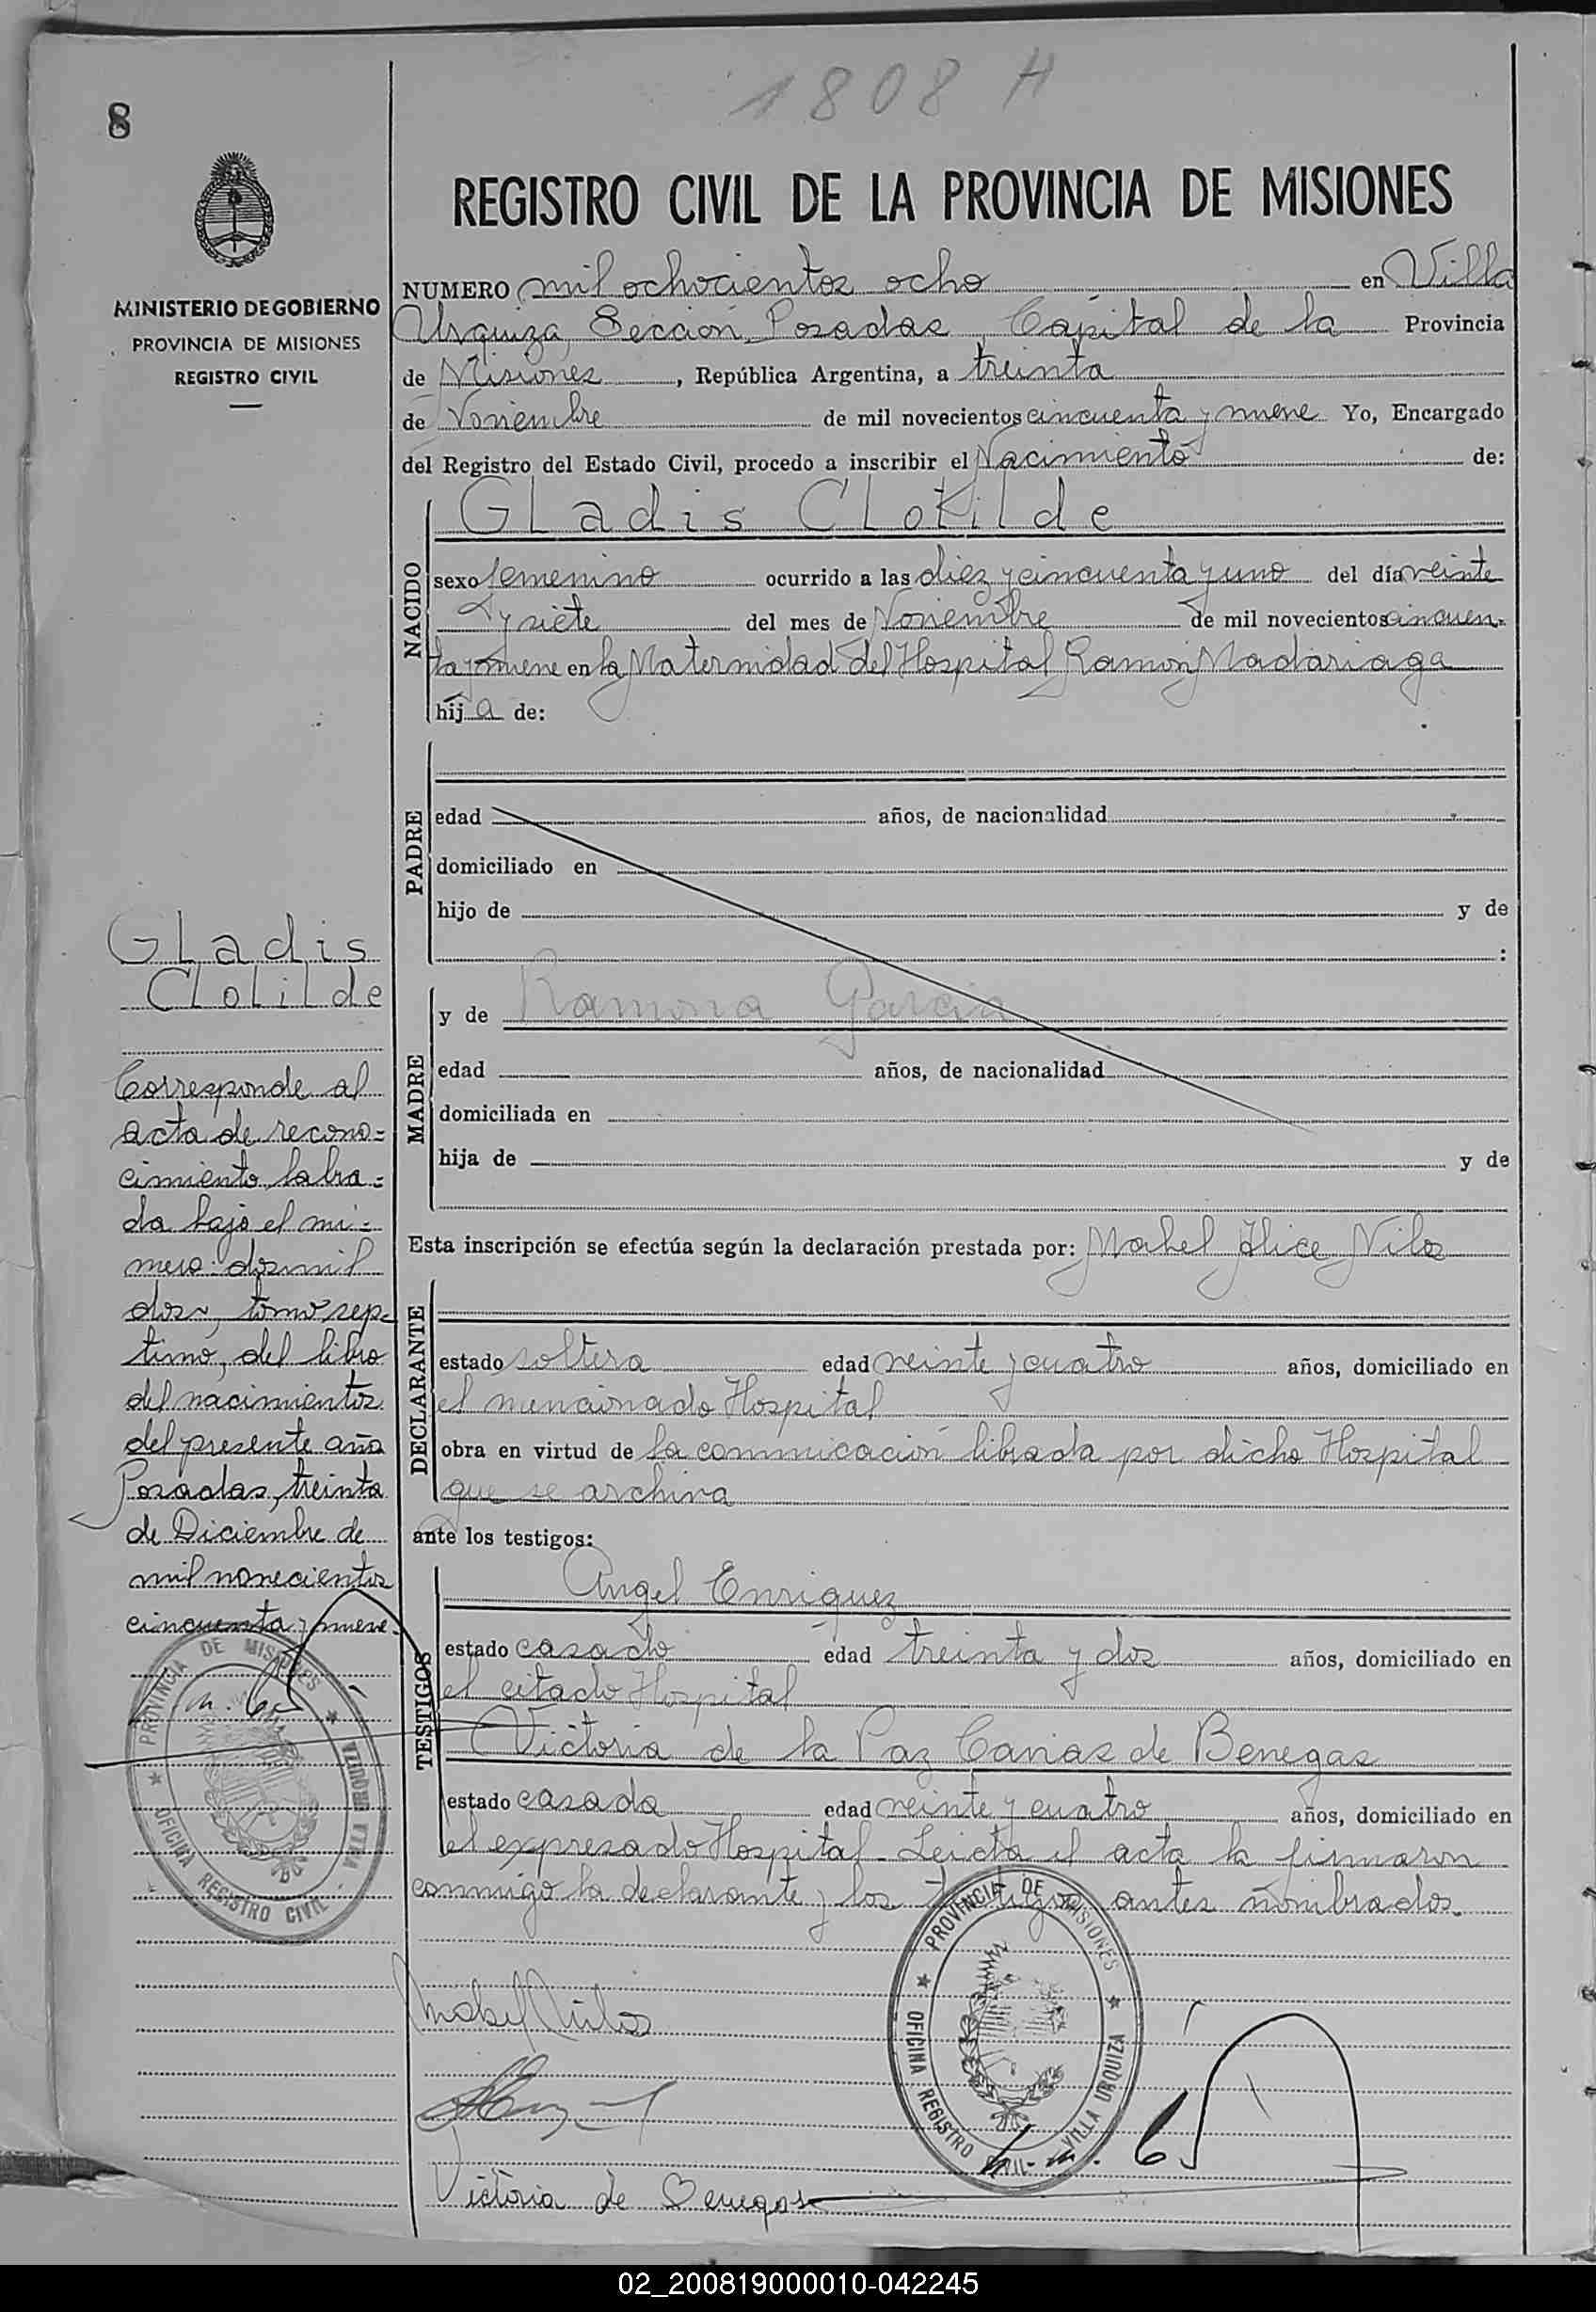 1808 H
8
REGISTRO CIVIL DE LA PROVINCIA DE MISIONES
MINISTERIO DE GOBIERNO
PROVINCIA DE MISIONES
REGISTRO CIVIL
NUMERO mil ochocientos ocho en Villa
Urquiza Sección Posadas Capital de la Provincia
de Misiones, República Argentina, a treinta
de Noviembre de mil novecientos cincuenta y nueve Yo, Encargado
del Registro del Estado Civil, procedo a inscribir el Nacimiento de:
NACIDO
GLadis CLotiLde
sexo femenino ocurrido a las diez y cincuenta y uno del día veinte
y siete del mes de Noviembre de mil novecientos cincuen-
ta y nueve en la Maternidad del Hospital Ramon Madariaga
hija de:
PADRE
edad años, de nacionalidad
domiciliado en
hijo de y de
:
MADRE
y de Ramona Garcia
edad años, de nacionalidad
domiciliada en
hija de y de
Esta inscripción se efectúa según la declaración prestada por: Mabel Alice Nilos
DECLARANTE
estado soltera edad veinte y cuatro años, domiciliado en
el mencionado Hospital
obra en virtud de la comunicación librada por dicho Hospital
que se archiva
ante los testigos:
TESTIGOS
Angel Enriquez
estado casado edad treinta y dos años, domiciliado en
el citado Hospital
Victoria de la Paz Canias de Benegas
estado casada edad veinte y cuatro años, domiciliado en
el expresado Hospital - Leida el acta la firmaron
conmigo la declarante y los testigos antes nombrados.
GLadis
CLotiLde
Corresponde al
acta de recono=
cimiento labra=
da bajo el nú=
mero dos mil
dos, tomo sep=
timo, del libro
del nacimientos
del presente año
Posadas, treinta
de Diciembre de
mil novecientos
cincuenta y nueve.
PROVINCIA DE MISIONES
VILLA URQUIZA
OFICINA REGISTRO CIVIL
Mabel Nilos
PROVINCIA DE MISIONES
VILLA URQUIZA
OFICINA REGISTRO CIVIL
Victoria de Benegas
02_200819000010-042245